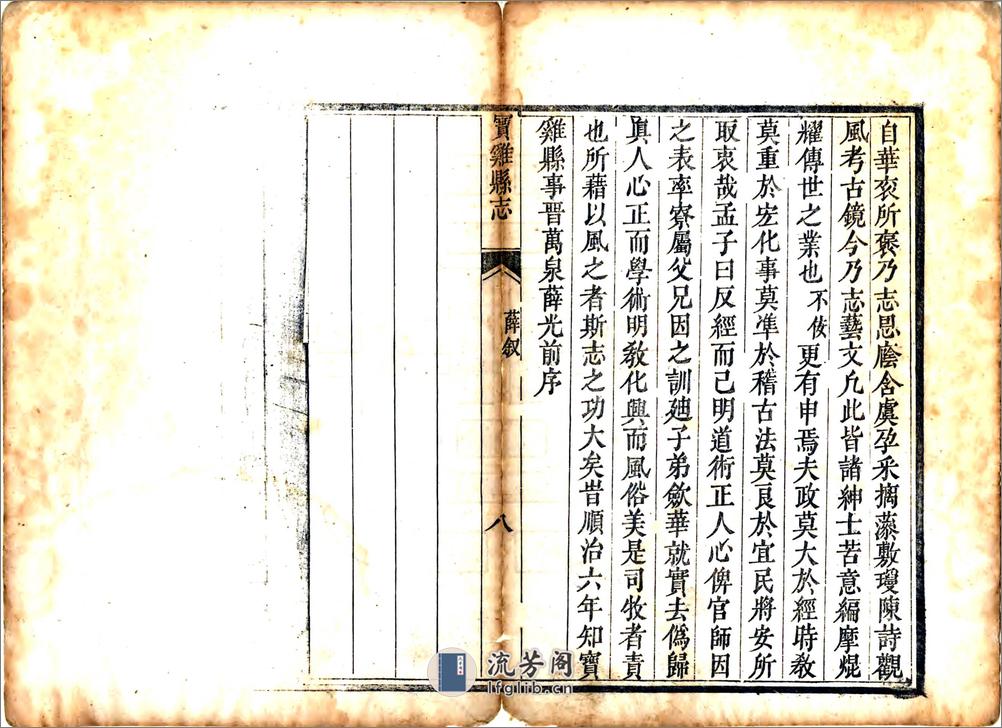 自華衮所褒乃志恩廕含虞孕釆摛藻敷瓊陳詩觀
風考古鏡今乃志藝文凢此皆諸紳士苦意編摩焜
耀傳世之業也不佞更有申焉夫政莫大於經時敎
莫重於宏化事莫準於稽古法莫良於宜民將安所
取衷哉孟子曰反經而已明道術正人心俾官師因
之表率寮屬父兄因之訓廸子弟歛華就實去僞歸
眞人心正而學術明敎化興而風俗美是司牧者責
也所藉以風之者斯志之功大矣旹順治六年知寶
雞縣事晋萬泉薛光前序
寶雞縣志
薛叙
八
流芳阁
lfglib.cn